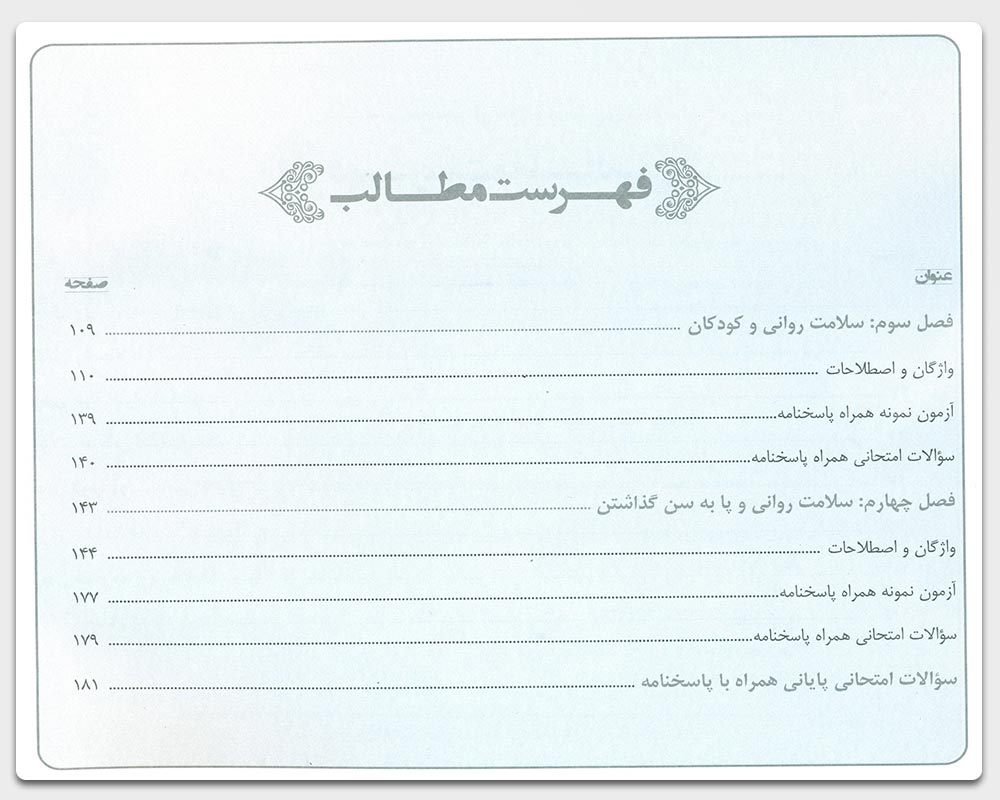 فهرست مطالب
عنوان صفحه
فصل سوم: سلامت روانی و کودکان ........ ۱۰۹
واژگان و اصطلاحات ........ ۱۱۰
آزمون نمونه همراه پاسخنامه ........ ۱۳۹
سؤالات امتحانی همراه پاسخنامه ........ ۱۴۰
فصل چهارم: سلامت روانی و پا به سن گذاشتن ........ ۱۴۳
واژگان و اصطلاحات ........ ۱۴۴
آزمون نمونه همراه پاسخنامه ........ ۱۷۷
سؤالات امتحانی همراه پاسخنامه ........ ۱۷۹
سؤالات امتحانی پایانی همراه با پاسخنامه ........ ۱۸۱